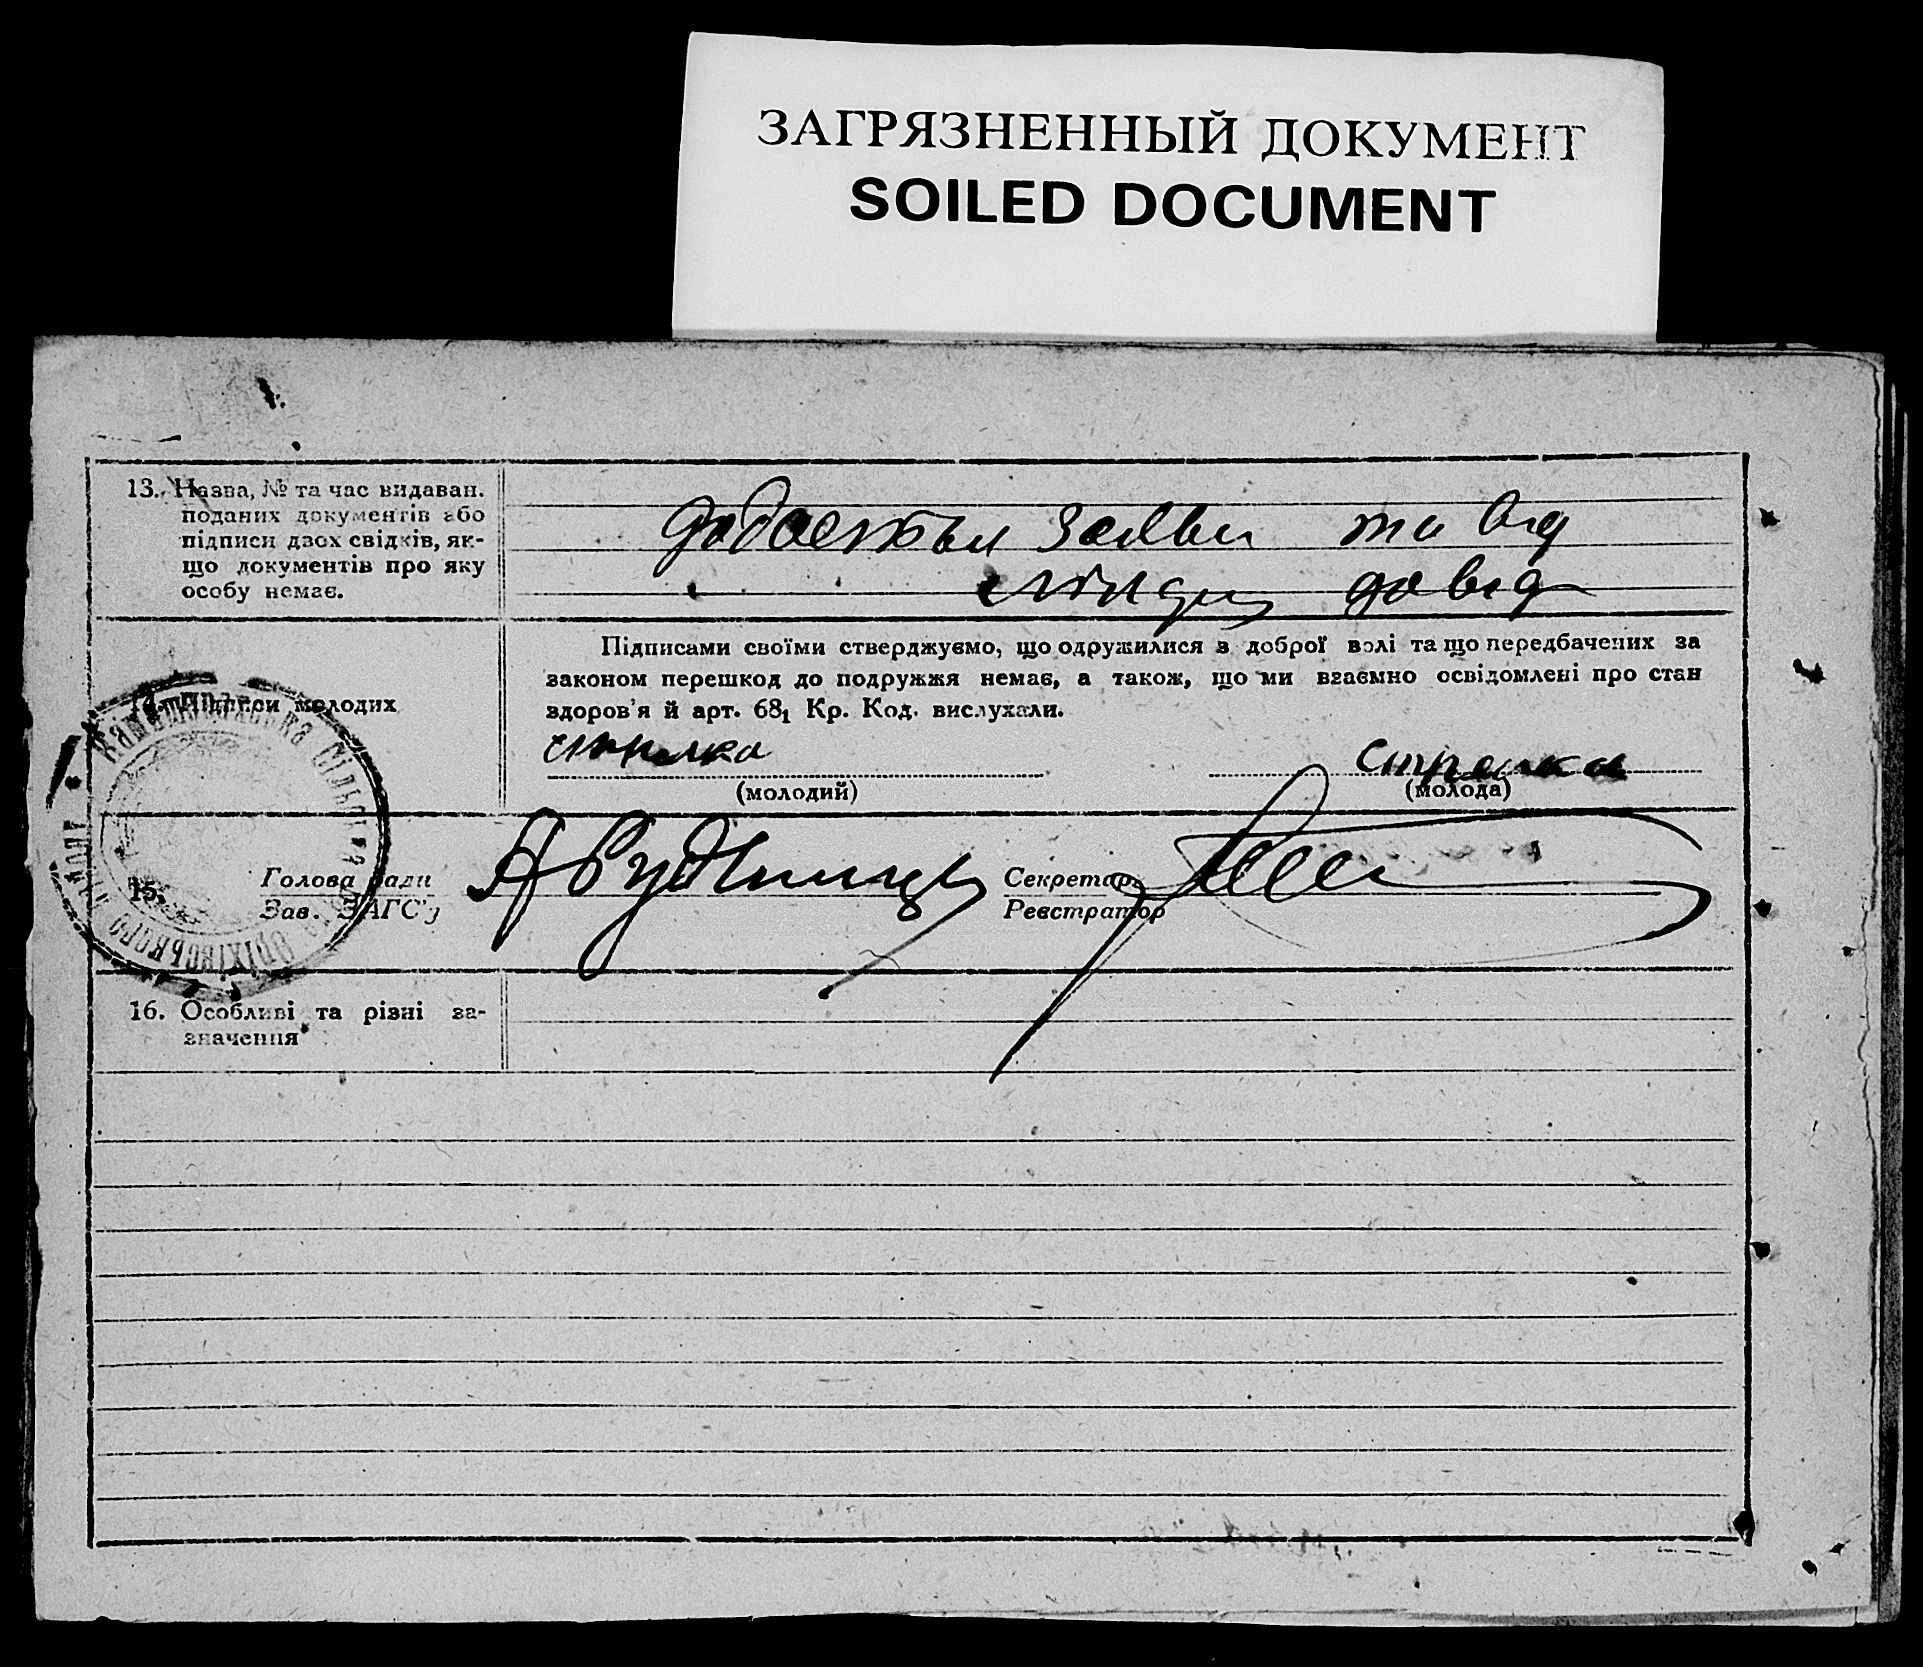 ЗАГРЯЗНЕННЫЙ ДОКУМЕНТ
SOILED DOCUMENT
13. Назва, № та час видаван.
поданих документів або
підписи двох свідків, як-
що документів про яку
особу немає.
додається заяви та від
довід
Підписами своїми стверджуємо, що одружилися з доброї волі та що передбачених за
законом перешкод до подружжя немає, а також, що ми взаємно освідомлені про стан
здоров'я й арт. 68₁ Кр. Код. вислухали.
14. Підписи молодих
(молодий)
(молода)
15.
Голова ради
Зав. ЗАГС'у
Секретар
Реєстратор
Оріхівського
16. Особливі та різні за-
значення